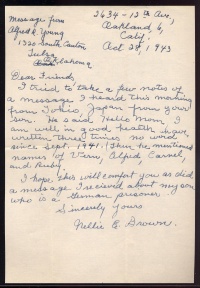 Message from
Alfred R. Young
1320 South Canton
Tulsa
Oklahoma
2634-13th Ave,
Oakland, 6,
Calif,
Oct 28, 1943
Dear Friends,
I tried to take a few notes of
a message I heard this morning
from Tokio, Japan from your
Son. He said Hello Mom I
am well in good health have
written three times no word
since Sept. 1941. Then he mentioned
names of Vern, Alfred, Carmel,
and Ruby.
I hope this will comfort you as did
a message I recieved about my son
who is a German prisoner.
Sincerely Yours
Nellie E. Brown